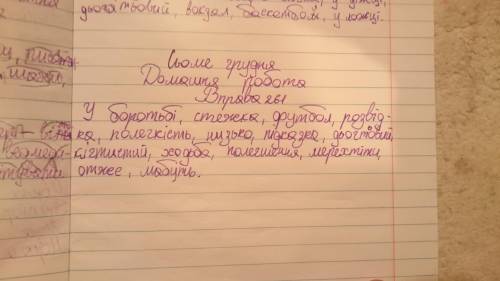 вокзал, баскетбол, у ложці.
Сьоме грудня
Домашня робота
Вправа 261
У боротьбі, стежка, футбол, розвід-
ка, полегкість, низько, підказка, дьогтовий,
кігтистий, ходьба, полегшення, мерехтіти,
отже, мабуть.